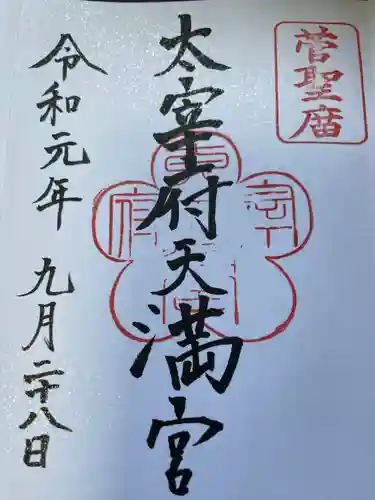 菅聖庿
太宰府天満宮
令和元年 九月二十八日